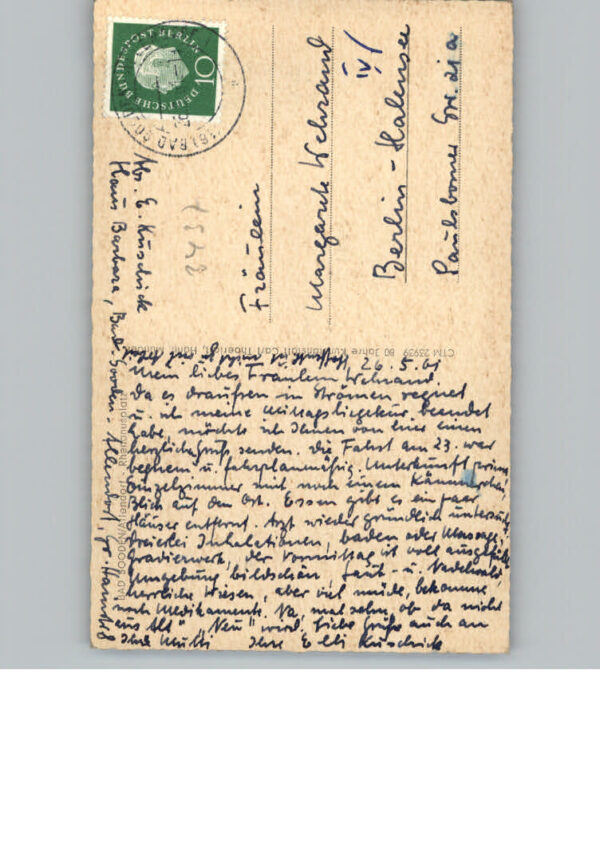 DEUTSCHE BUNDESPOST BERLIN
10
BAD
Abs. E. Kuschick
Haus Barbara, Bad Sooden-Allendorf, Gr. Hainstr. 8
Fräulein
Margarete Wehrand
IV/
Berlin-Halensee
Paulsborner Str.
CTM 23929 80 Jahre Kunstanstalt Carl Thoericht, Hann. Münden
BAD SOODEN-Allendorf - Rhenanusplatz
26.5.61
Mein liebes Fräulein Wehrand.
Da es draußen in Strömen regnet
u. ich meine Mittagsliegekur beendet
habe, möchte ich Ihnen von hier einen
herzlichen Gruß senden. Die Fahrt am 23. war
bequem u. fahrplanmäßig. Unterkunft prima
Einzelzimmer mit noch einem
Blick auf den Ort. Essen gibt es ein paar
Häuser entfernt. Arzt wieder gründlich untersucht
dreierlei Inhalationen, baden oder Massage,
Gradierwerk, der Vormittag ist voll ausgefüllt
Umgebung bildschön, Laub- u. Nadelwald,
herrliche Wiesen, aber viel müde, bekomme
noch Medikamente. Na, mal sehn, ob da nicht
aus Alt "Neu" wird. Liebe Grüße auch an
Ihre Mutti Ihre Elli Kuschick